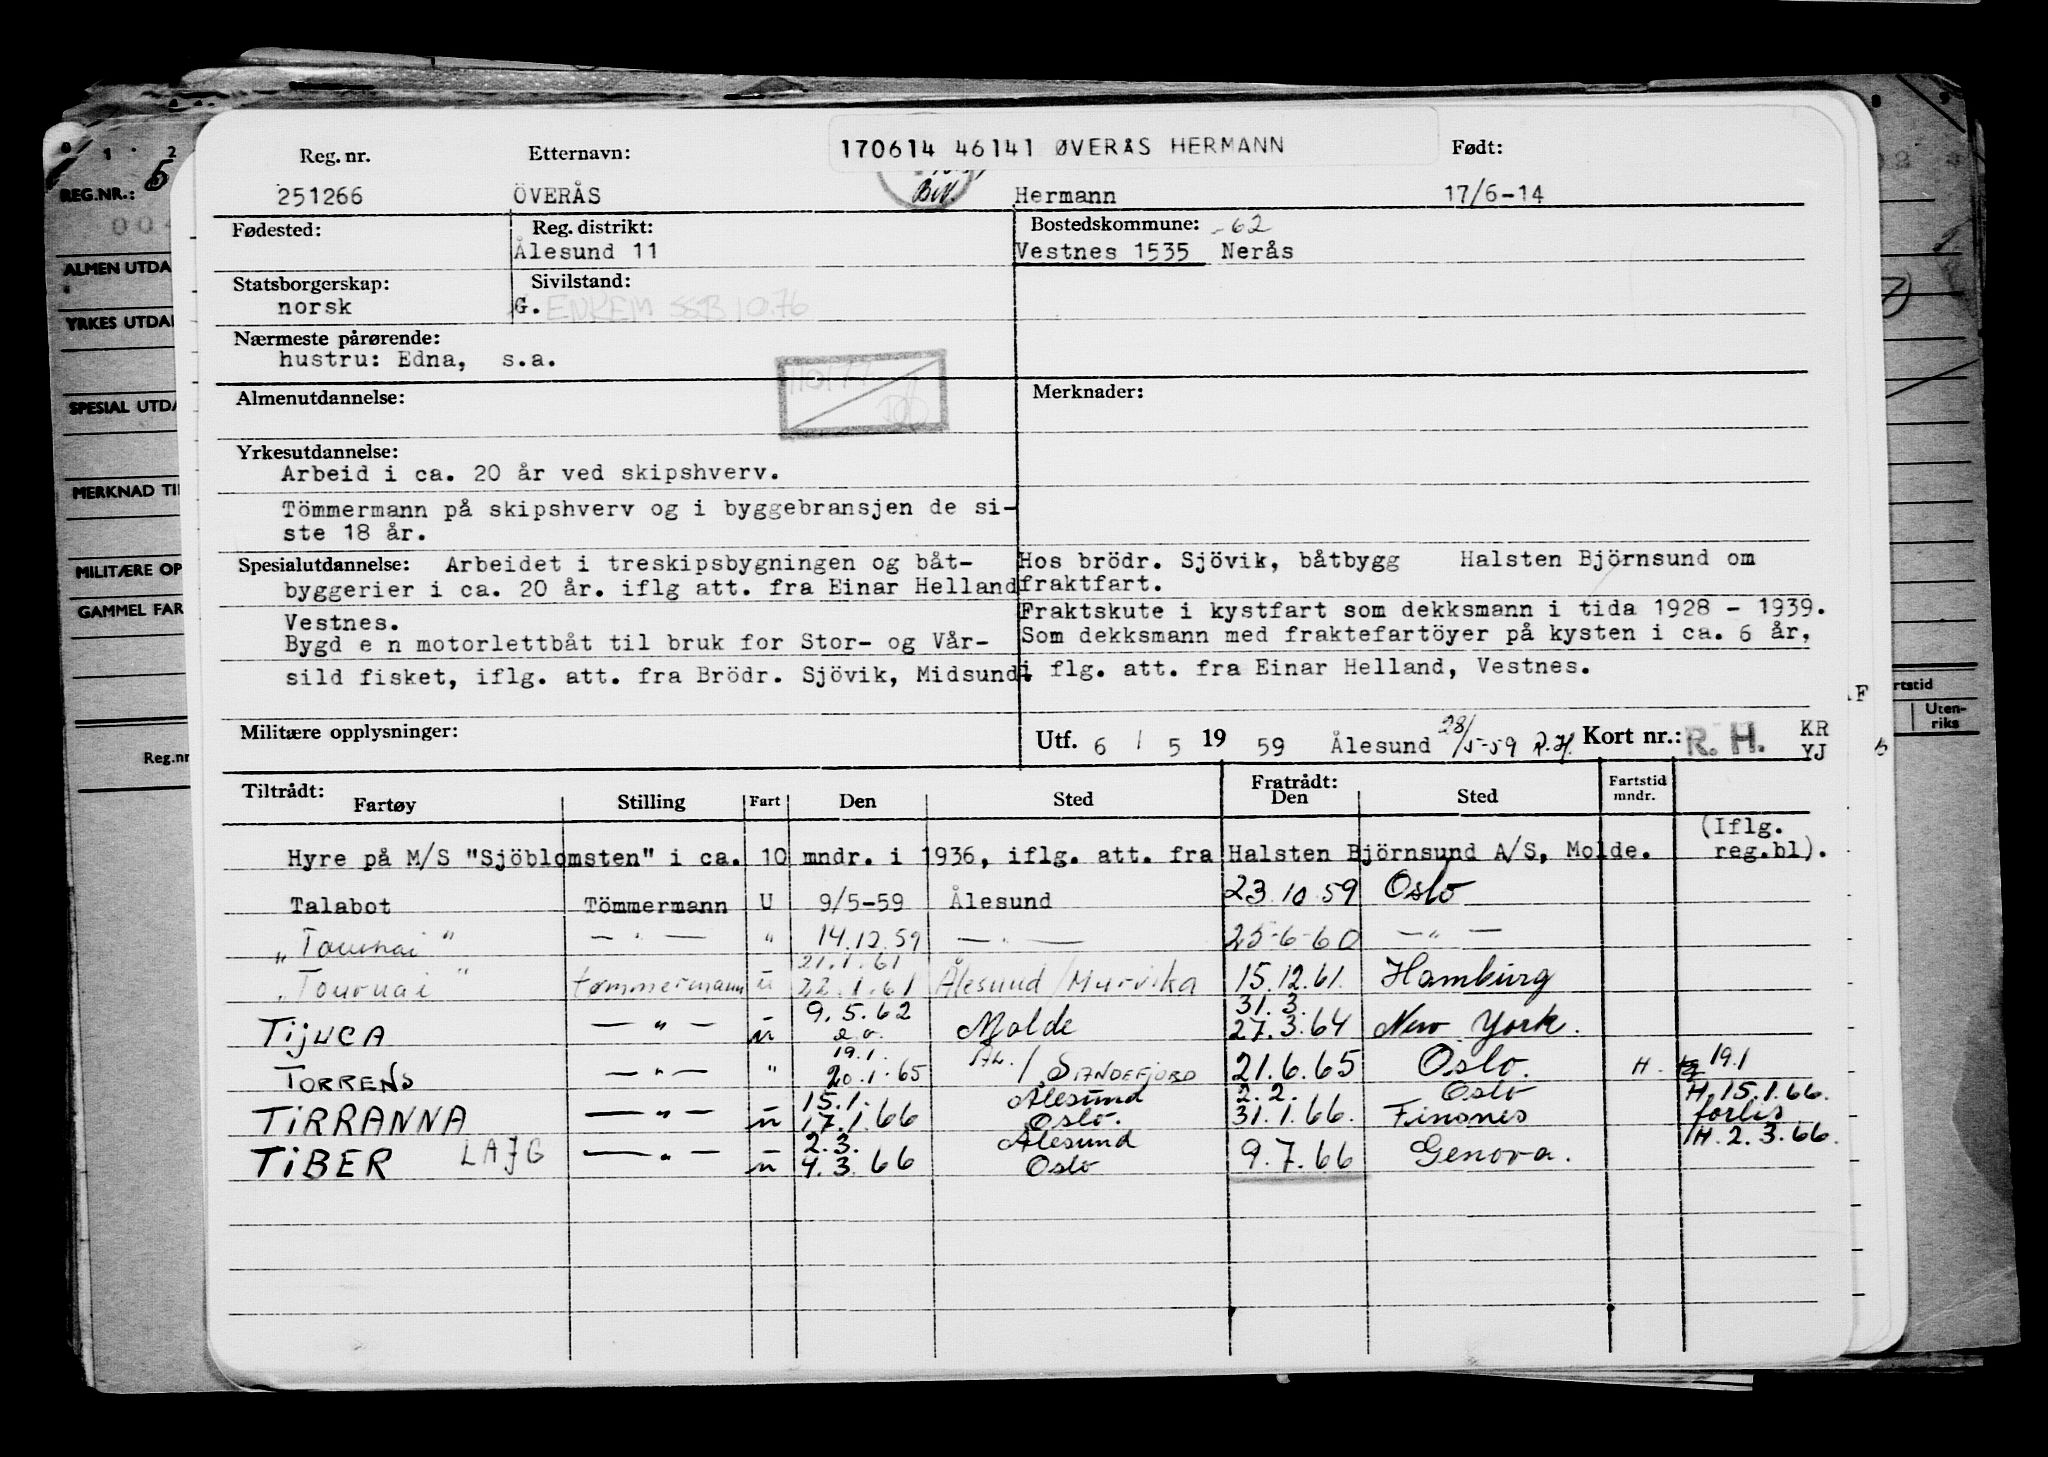 170614 46141 ØVERÅS HERMANN
Reg. nr. Etternavn: Født:
251266 ÖVERÅS Hermann 17/6-14
Fødested: Reg. distrikt: Bostedskommune: -62
Ålesund 11 Vestnes 1535 Nerås
Statsborgerskap: Sivilstand:
norsk G. ENKEM SSB 10.76
Nærmeste pårørende:
hustru: Edna, s.a.
Almenutdannelse: Merknader:
Yrkesutdannelse:
Arbeid i ca. 20 år ved skipshverv.
Tömmermann på skipshverv og i byggebransjen de si-
ste 18 år.
Spesialutdannelse: Arbeidet i treskipsbygningen og båt-
byggerier i ca. 20 år. iflg att. fra Einar Helland
Vestnes.
Bygd e n motorlettbåt til bruk for Stor- og Vår-
sild fisket, iflg. att. fra Brödr. Sjövik, Midsund.
Hos brödr. Sjövik, båtbygg Halsten Björnsund om
fraktfart.
Fraktskute i kystfart som dekksmann i tida 1928 - 1939.
Som dekksmann med fraktefartöyer på kysten i ca. 6 år,
i flg. att. fra Einar Helland, Vestnes.
Militære opplysninger: Utf. 6 / 5 19 59 Ålesund 28/5-59 R.H. Kort nr.: R. H. KR
YJ
Tiltrådt: Fratrådt:
Fartøy Stilling Fart Den Sted Den Sted Fartstid mndr.
(Iflg.
Hyre på M/S "Sjöblomsten" i ca. 10 mndr. i 1936, iflg. att. fra Halsten Björnsund A/S, Molde. reg.bl).
Talabot Tömmermann U 9/5-59 Ålesund 23.10.59 Oslo
"Tournai" — " — " 14.12.59 — " — 25-6-60 — " —
21.1.61
"Tournai" tømmermann u 22.1.61 Ålesund/Murvika 15.12.61. Hamburg
9.5.62 31.3.
TIJUCA — " — u Molde 27.3.64 New York.
19.1.
TORRENS — " — " 20.1.65 ÅL. / SANDEFJORD 21.6.65 Oslo. H. 19.1
15.1. Ålesund 2.2. Oslo H. 15.1.66.
TIRRANNA — " — u 17.1.66 Oslo. 31.1.66. Finsnes forlis
2.3. Ålesund H. 2.3.66.
TIBER LAJG — " — u 4.3.66 Oslo 9.7.66 Genova.
REG.NR.:
ALMEN UTDA
YRKES UTDA
SPESIAL UTDA
MERKNAD TI
MILITÆRE OP
GAMMEL FAR
Reg.nr
rtstid
Uten-
riks